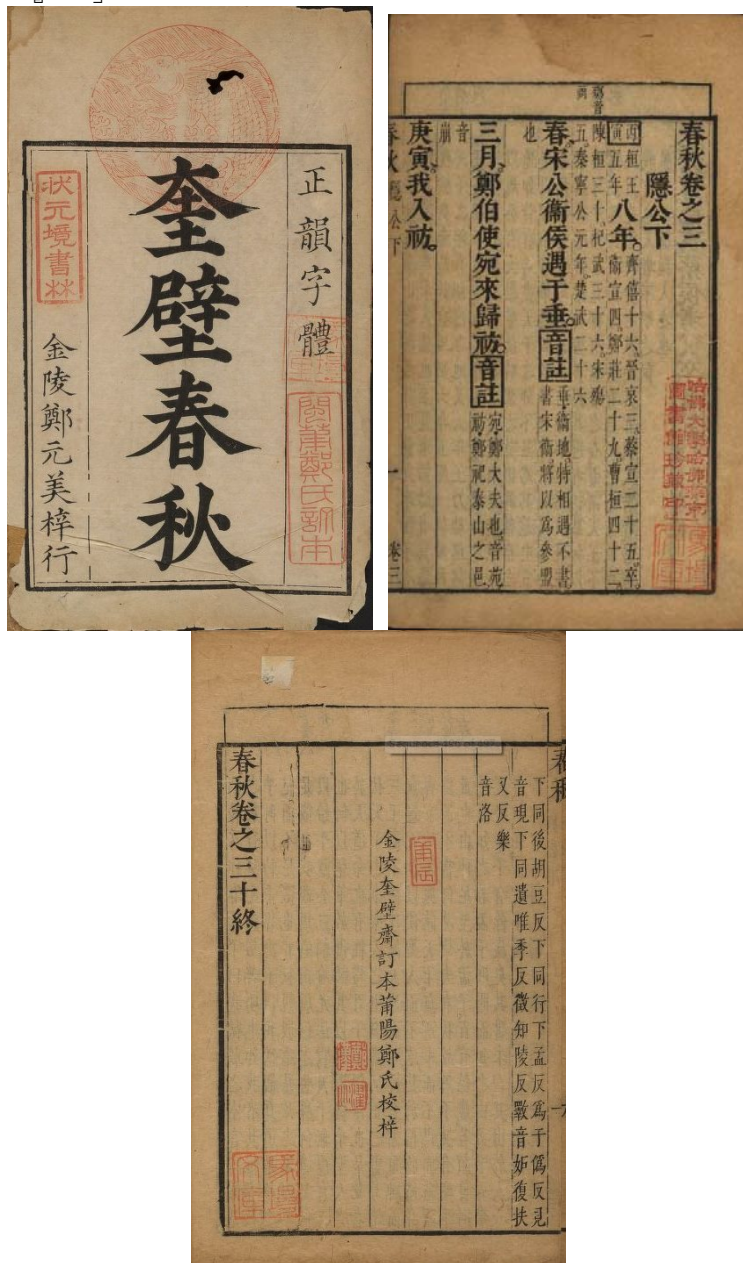 正韻字體
奎壁春秋
金陵鄭元美梓行
狀元境書林
閩莆鄭氏訂本
春秋卷之三
隱公下
丙寅
桓王五年
八年。
齊僖十六。晉哀三。蔡宣二十五卒。
衞宣四。鄭莊二十九。曹桓四十二。
陳桓三十。杞武三十六。宋殤
五。秦寧公元年。楚武二十六
春。宋公衞侯遇于垂。音註
垂。衞地。特相遇不書。
書宋衞。將以爲參盟
也
三月。鄭伯使宛來歸祊。音註
宛。鄭大夫也。音苑。
祊。鄭祀泰山之邑。
音崩
庚寅。我入祊。
春秋 隱公下 一
哈佛大學哈佛燕京
圖書館珍藏印
下同後胡豆反下同行下孟反爲于僞反見
音現下同遺唯季反徵知陵反斁音妒復扶
又反樂
音洛
金陵奎壁齋訂本莆陽鄭氏校梓
春秋卷之三十終